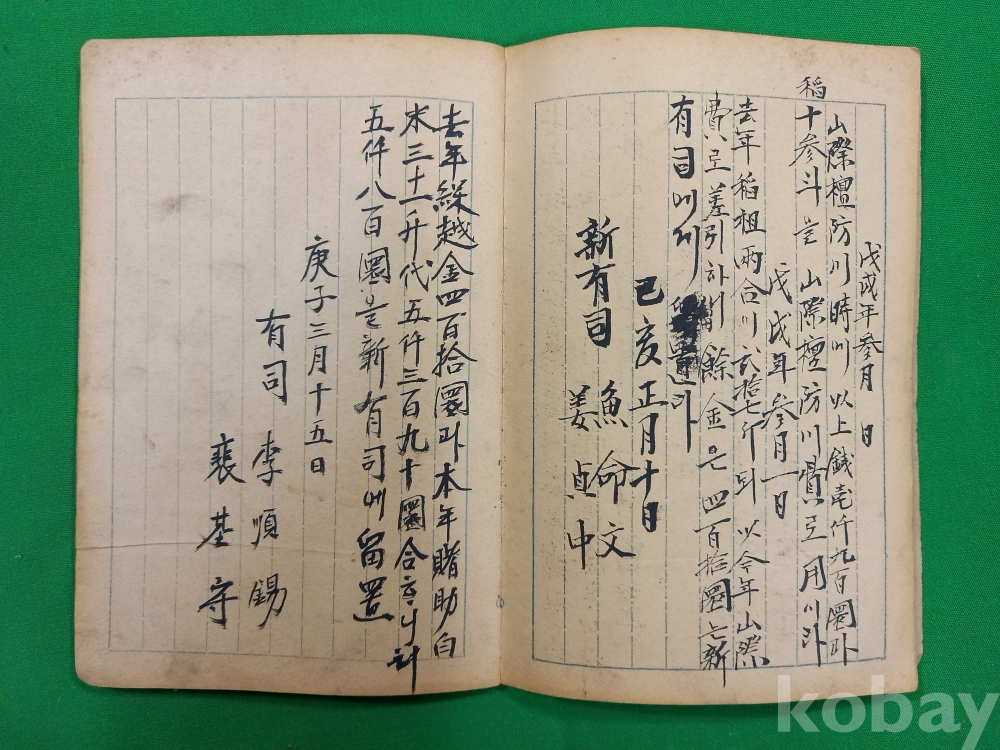 戊戌年参月 日
山際檀防川時 以上錢壱仟九百圜과
稻十参斗는 山際檀防川費로 用이라
戊戌年参月一日
去年稻租兩合川 弐拾七斗되 以今年山際
費로差引하 餘金은 四百拾圜는新
有司
己亥正月十日
新有司 魚命文
姜貞中
去年繰越金四百拾圜과本年賭助白
米三十一升代五仟三百九十圜合
五仟八百圜는新有司에留置
庚子三月十五日
有司 李順錫
裵基守
kobay